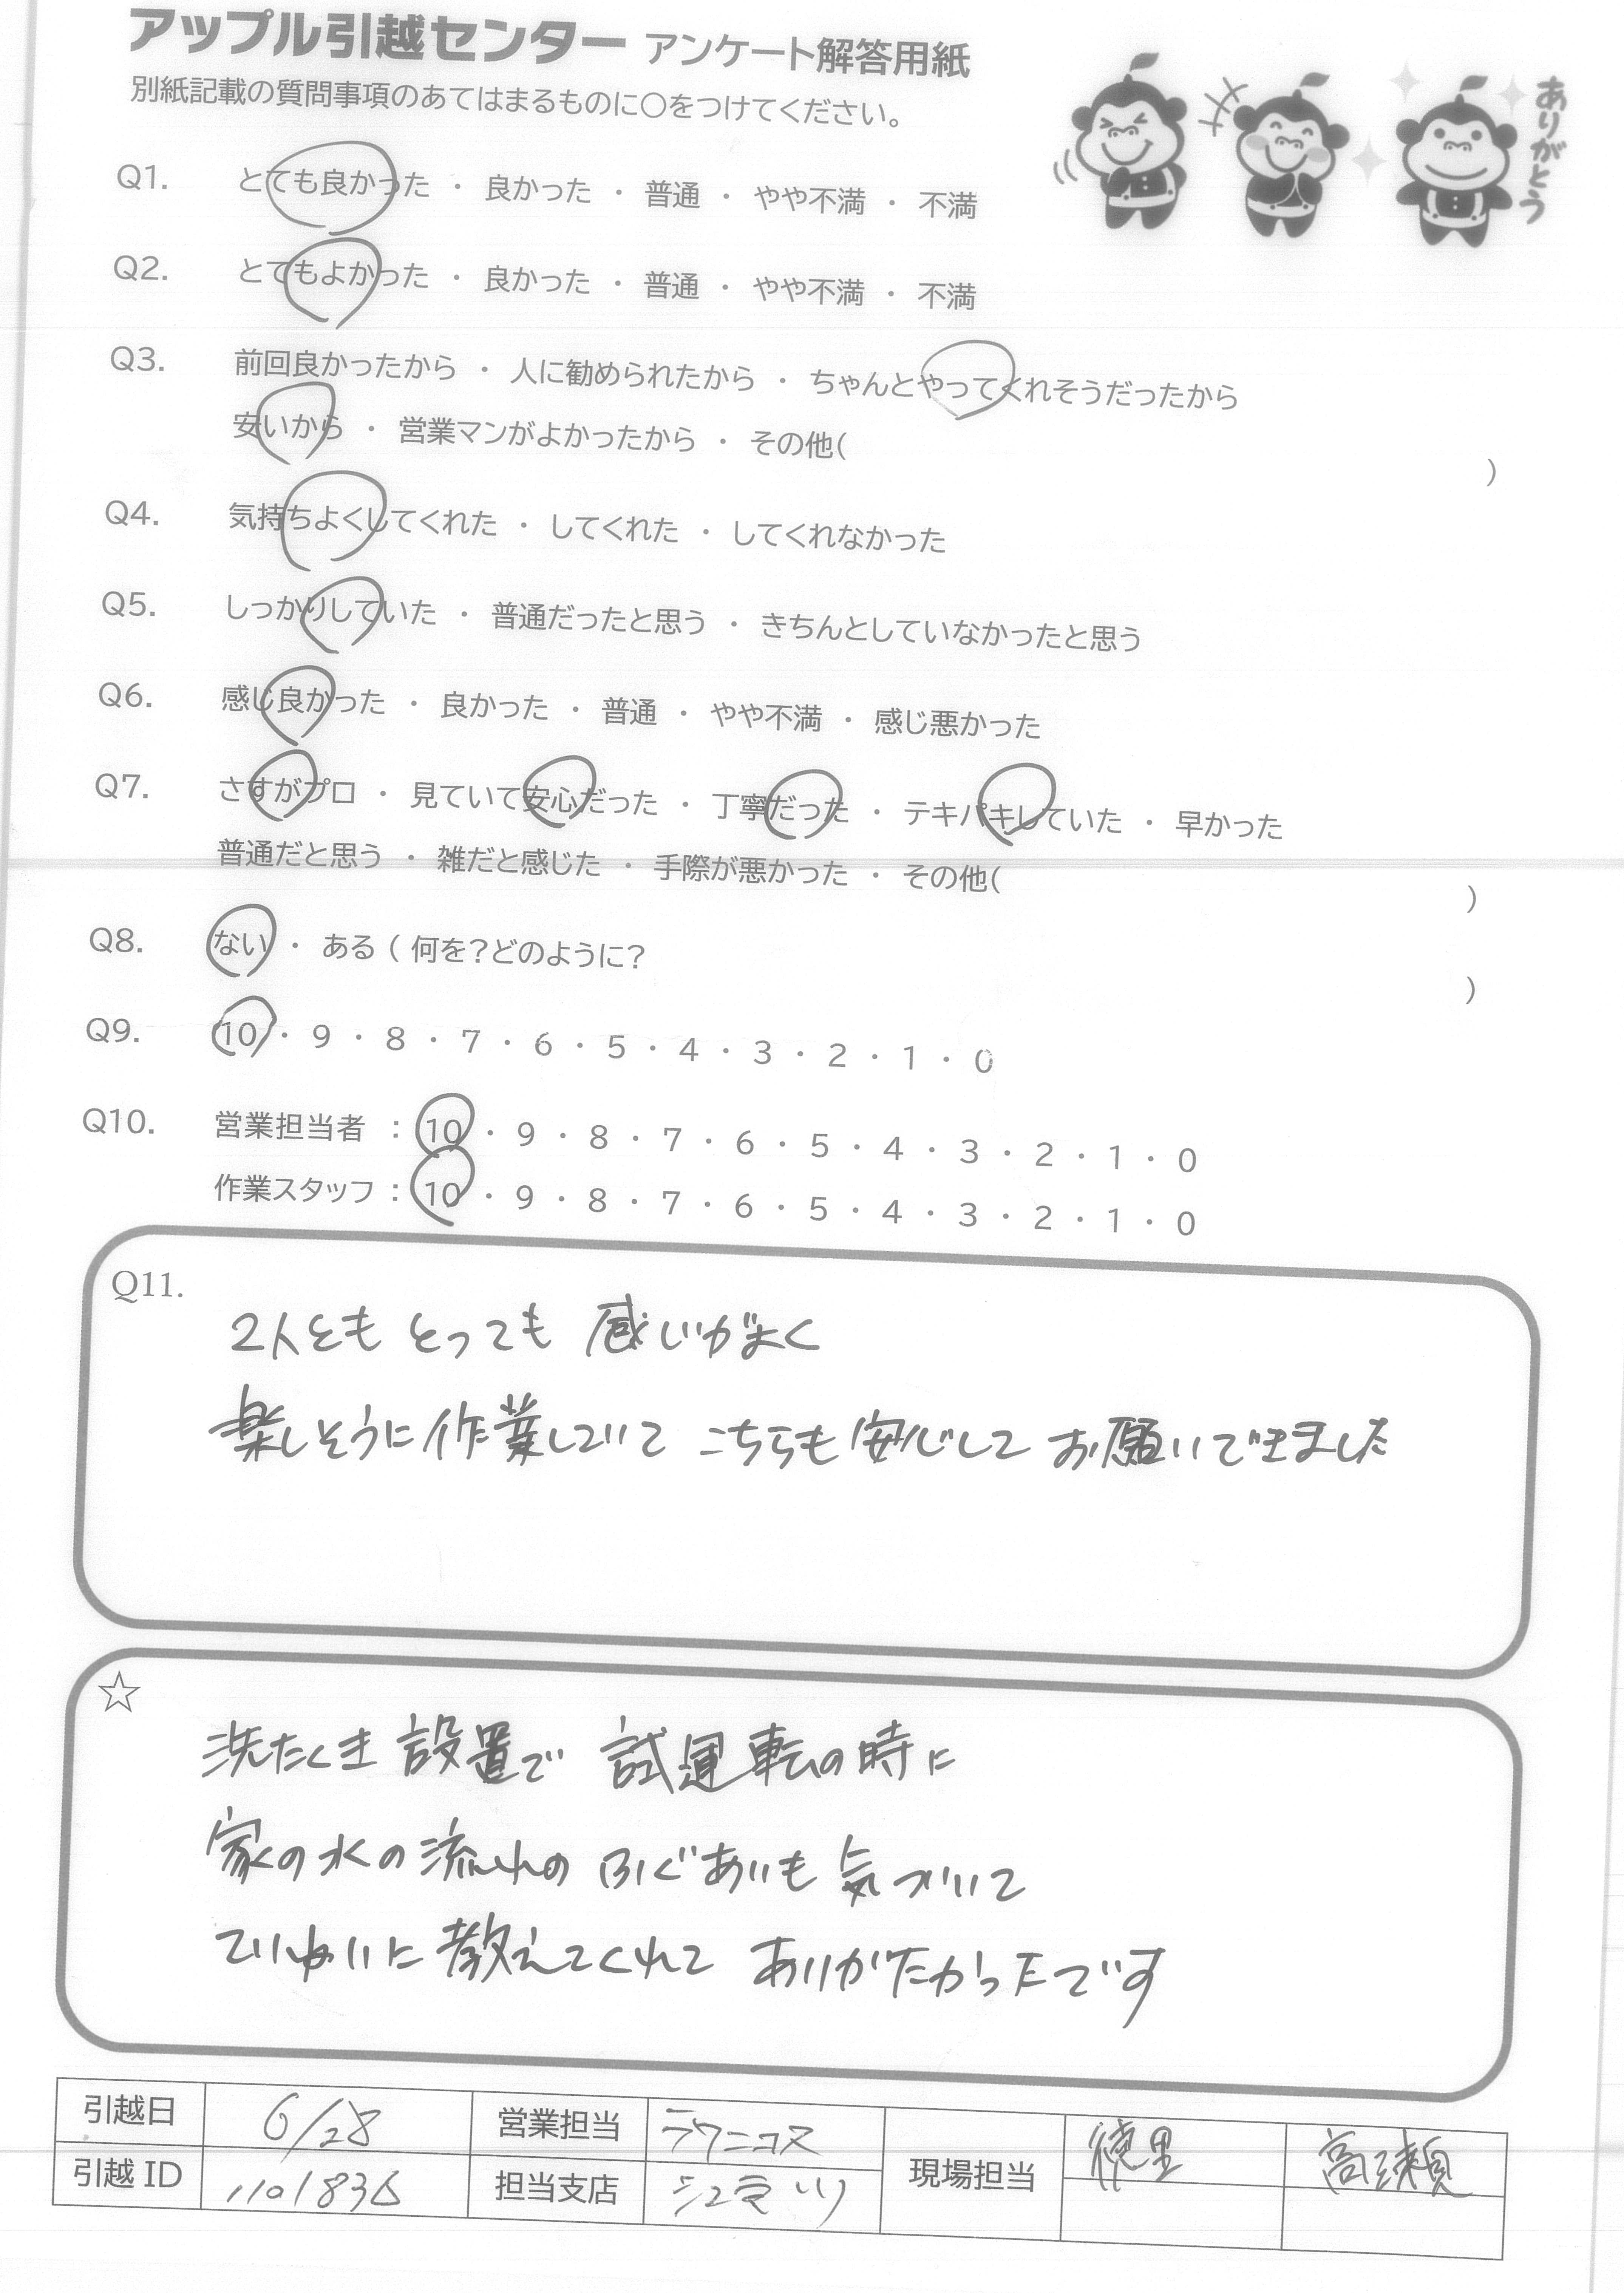 アップル引越センター アンケート解答用紙
別紙記載の質問事項のあてはまるものに○をつけてください。
ありがとう
Q1. とても良かった ・ 良かった ・ 普通 ・ やや不満 ・ 不満
Q2. とてもよかった ・ 良かった ・ 普通 ・ やや不満 ・ 不満
Q3. 前回良かったから ・ 人に勧められたから ・ ちゃんとやってくれそうだったから
安いから ・ 営業マンがよかったから ・ その他( )
Q4. 気持ちよくしてくれた ・ してくれた ・ してくれなかった
Q5. しっかりしていた ・ 普通だったと思う ・ きちんとしていなかったと思う
Q6. 感じ良かった ・ 良かった ・ 普通 ・ やや不満 ・ 感じ悪かった
Q7. さすがプロ ・ 見ていて安心だった ・ 丁寧だった ・ テキパキしていた ・ 早かった
普通だと思う ・ 雑だと感じた ・ 手際が悪かった ・ その他( )
Q8. ない ・ ある ( 何を?どのように? )
Q9. 10 ・ 9 ・ 8 ・ 7 ・ 6 ・ 5 ・ 4 ・ 3 ・ 2 ・ 1 ・ 0
Q10. 営業担当者 : 10 ・ 9 ・ 8 ・ 7 ・ 6 ・ 5 ・ 4 ・ 3 ・ 2 ・ 1 ・ 0
作業スタッフ : 10 ・ 9 ・ 8 ・ 7 ・ 6 ・ 5 ・ 4 ・ 3 ・ 2 ・ 1 ・ 0
Q11.
2人とも とっても 感じがよく
楽しそうに作業していて こちらも安心して お願いできました
☆
洗たくき 設置で 試運転の時に
家の水の流れの ふぐあいも 気づいて
ていねいに 教えてくれて ありがたかったです
引越日 6/28 営業担当 ラクニコス 現場担当 徳里 高瀬
引越ID 1101836 担当支店